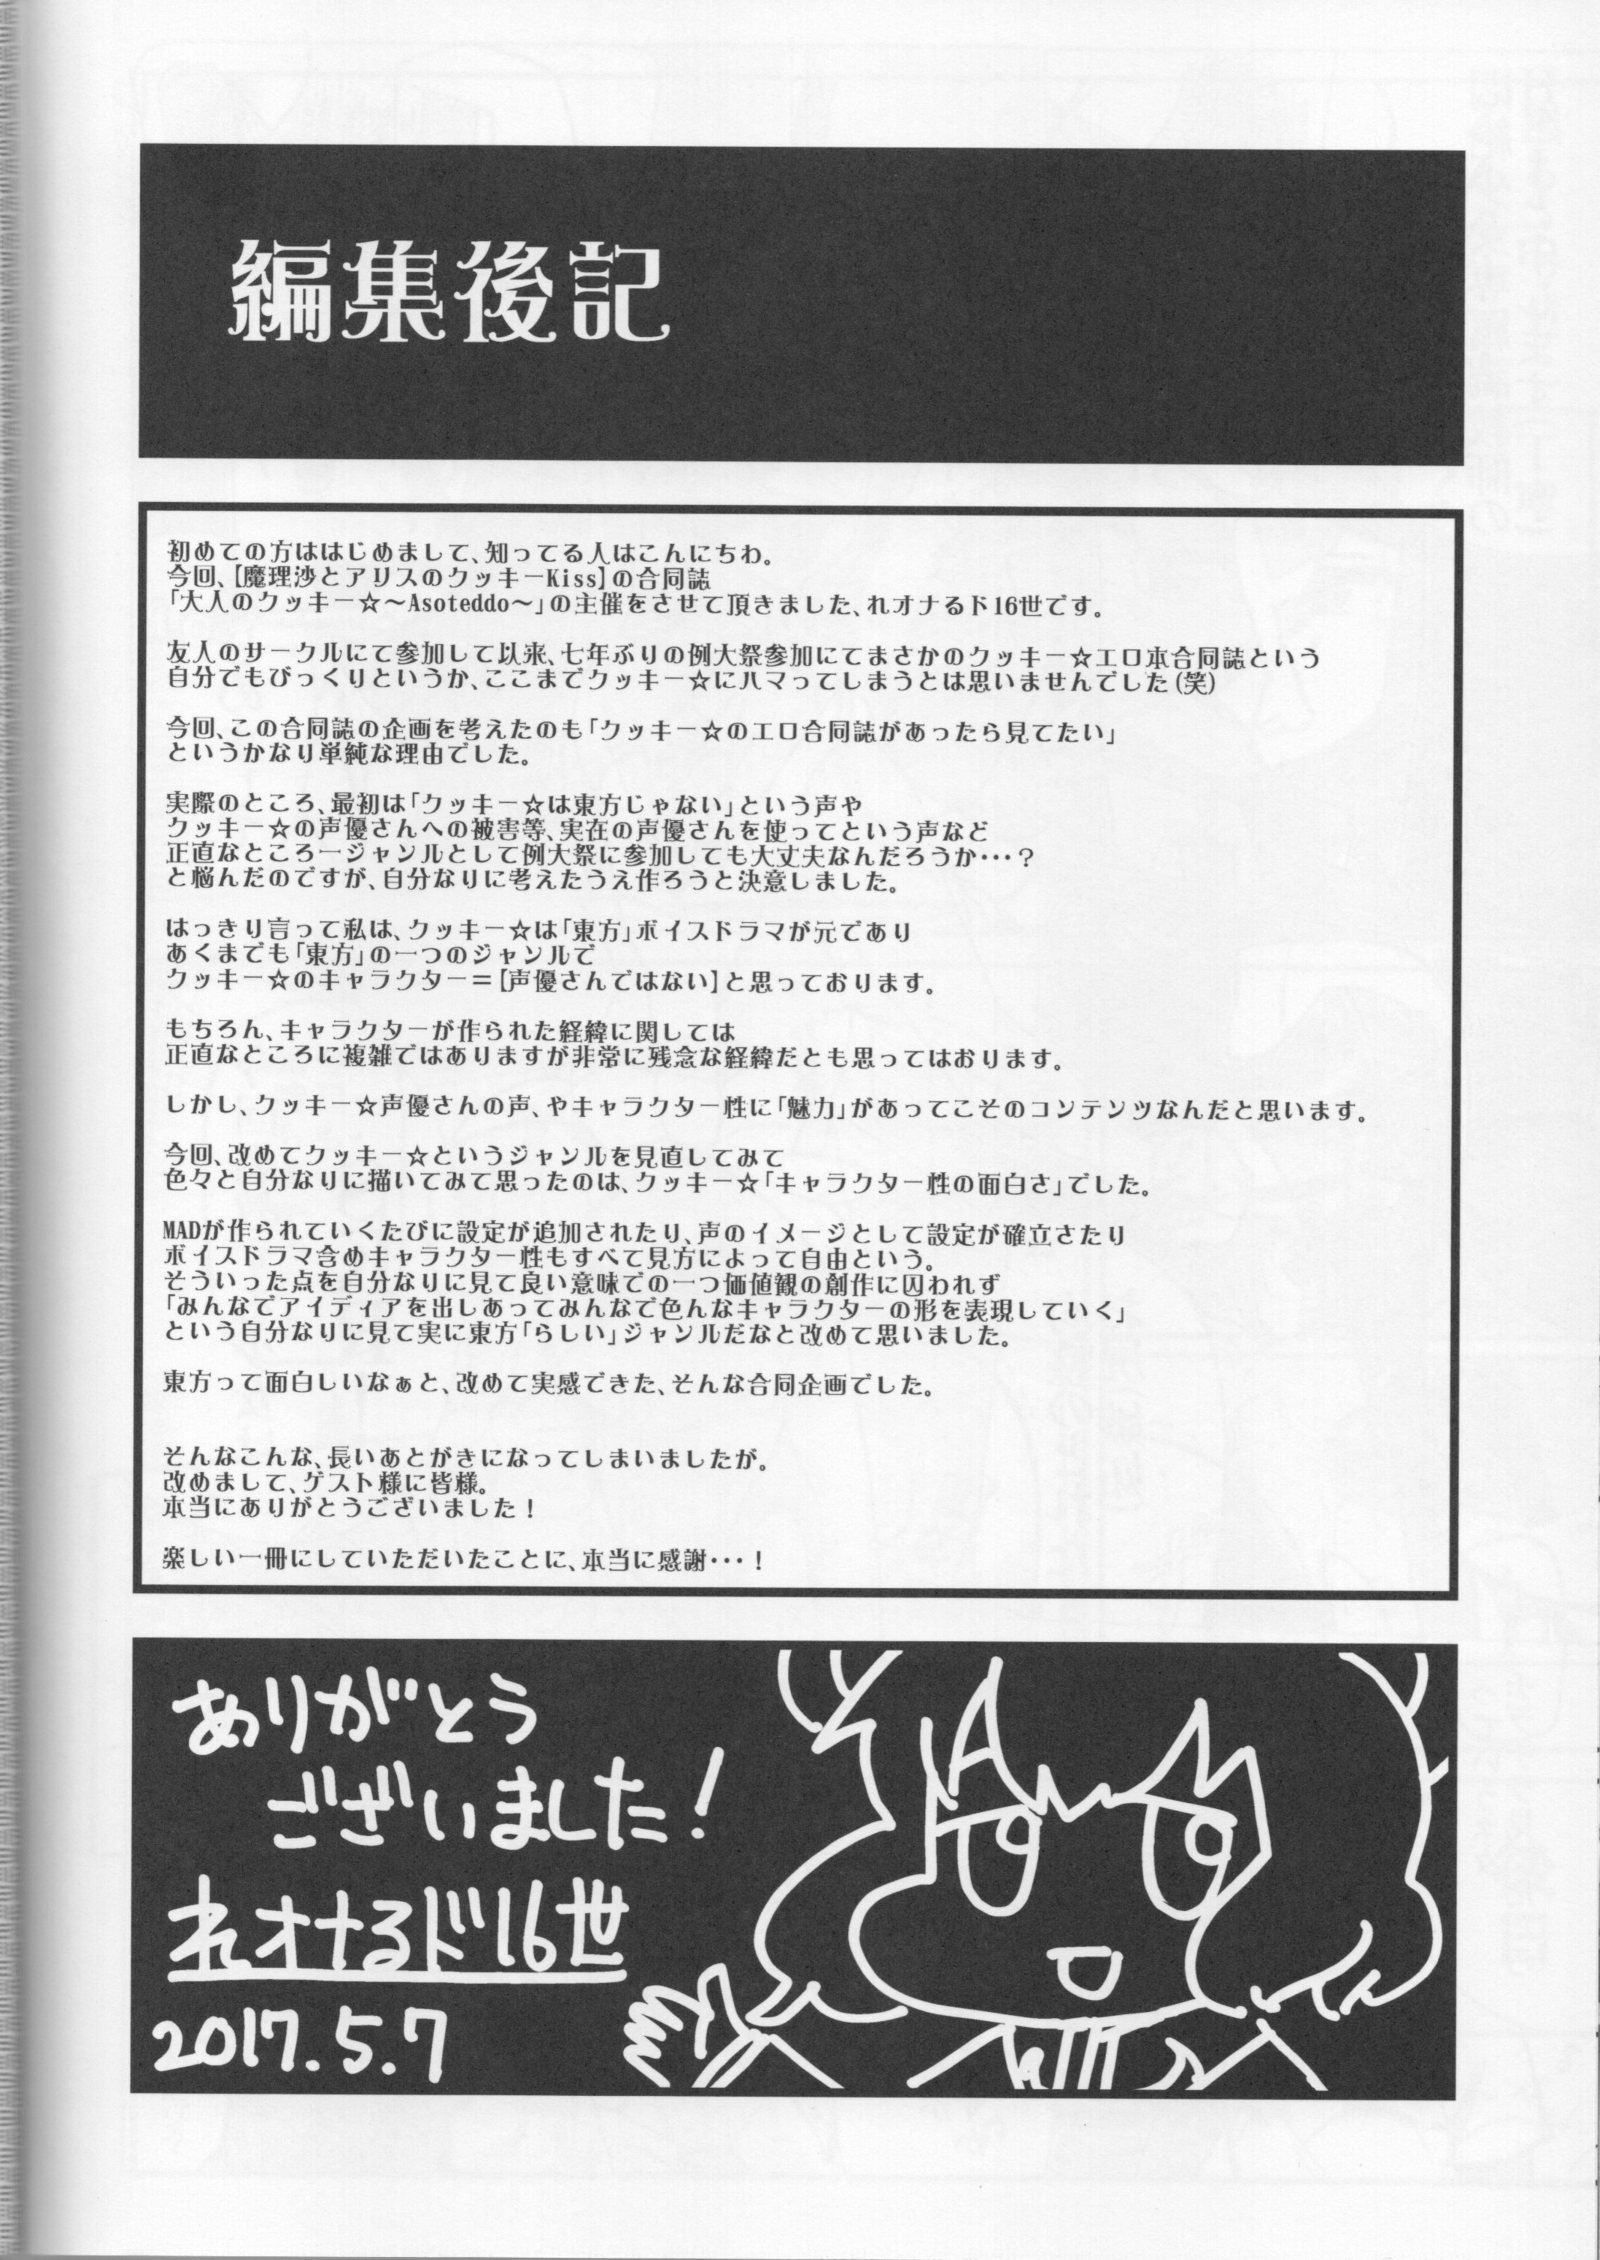 編集後記
初めての方ははじめまして、知ってる人はこんにちわ。
今回、【魔理沙とアリスのクッキーKiss】の合同誌
「大人のクッキー☆～Asoteddo～」の主催をさせて頂きました、れオナるド16世です。
友人のサークルにて参加して以来、七年ぶりの例大祭参加にてまさかのクッキー☆エロ本合同誌という
自分でもびっくりというか、ここまでクッキー☆にハマってしまうとは思いませんでした(笑)
今回、この合同誌の企画を考えたのも「クッキー☆のエロ合同誌があったら見てたい」
というかなり単純な理由でした。
実際のところ、最初は「クッキー☆は東方じゃない」という声や
クッキー☆の声優さんへの被害等、実在の声優さんを使ってという声など
正直なところ一ジャンルとして例大祭に参加しても大丈夫なんだろうか・・・？
と悩んだのですが、自分なりに考えたうえ作ろうと決意しました。
はっきり言って私は、クッキー☆は「東方」ボイスドラマが元であり
あくまでも「東方」の一つのジャンルで
クッキー☆のキャラクター＝【声優さんではない】と思っております。
もちろん、キャラクターが作られた経緯に関しては
正直なところに複雑ではありますが非常に残念な経緯だとも思ってはおります。
しかし、クッキー☆声優さんの声、やキャラクター性に「魅力」があってこそのコンテンツなんだと思います。
今回、改めてクッキー☆というジャンルを見直してみて
色々と自分なりに描いてみて思ったのは、クッキー☆「キャラクター性の面白さ」でした。
MADが作られていくたびに設定が追加されたり、声のイメージとして設定が確立さたり
ボイスドラマ含めキャラクター性もすべて見方によって自由という。
そういった点を自分なりに見て良い意味での一つ価値観の創作に囚われず
「みんなでアイディアを出しあってみんなで色んなキャラクターの形を表現していく」
という自分なりに見て実に東方「らしい」ジャンルだなと改めて思いました。
東方って面白しいなぁと、改めて実感できた、そんな合同企画でした。
そんなこんな、長いあとがきになってしまいましたが。
改めまして、ゲスト様に皆様。
本当にありがとうございました！
楽しい一冊にしていただいたことに、本当に感謝・・・！
ありがとう
ございました！
れオナるド16世
2017.5.7